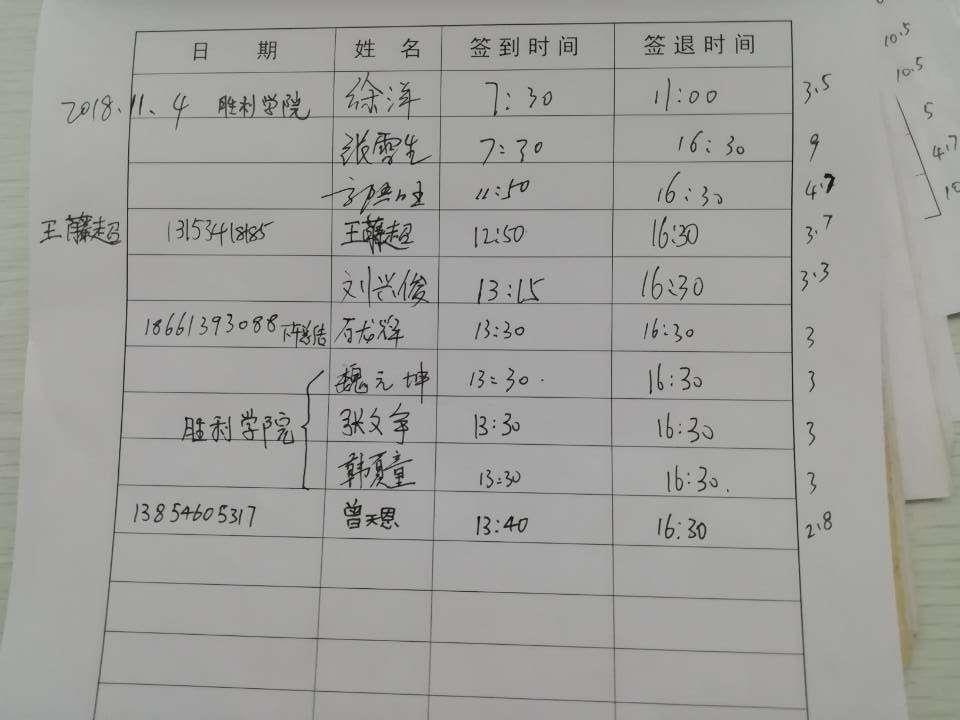 日 期 姓 名 签到时间 签退时间
2018.11.4 胜利学院 徐洋 7:30 11:00 3.5
张雪生 7:30 16:30 9
11:50 16:30 4.7
王藤超 13153418185 王藤超 12:50 16:30 3.7
刘兴俊 13:15 16:30 3.3
18661393088 石龙辉 13:30 16:30 3
魏元坤 13:30. 16:30 3
胜利学院 张文宇 13:30 16:30 3
韩夏童 13:30 16:30. 3
13854605317 曾天恩 13:40 16:30 2.8
10.5
10.5
5
4.7
10